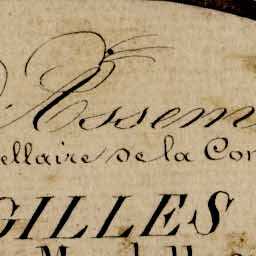 Assem
ellaire de la Con
GILLES